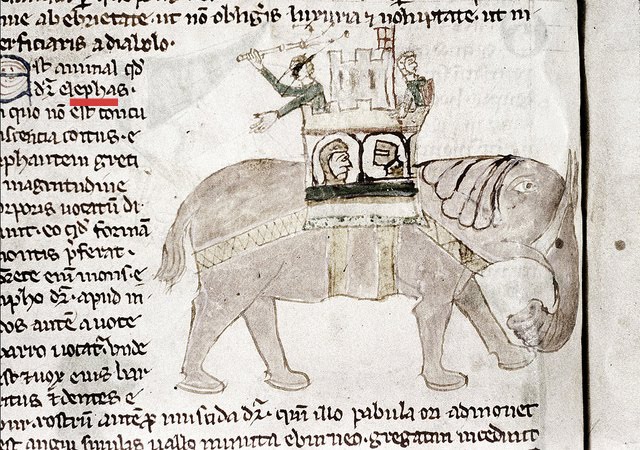 me ab ebrietate. ut nō obligīs luxuria ⁊ uoluptate. ut
erficiaris a diabolo.
Est animal qd̄
dr̄ elephas.
n quo nō est concu
iscencia coitus. e
ephantem greci
magnitudine
orporis uocatū di
unt. eo qd̄ formā
montis p̄ferat.
Grece eni᷑ mons. e
epho dr̄. apud in
dos autē a uoce
barro uocat᷑. unde
est ⁊ uox eius bar
ritus ⁊ dentes e
bur. rostrū autē ꝓmuscida dr̄. qm̄ illo pabula ori admouet
est angui similis uallo munita eburneo. gregatim incedunt